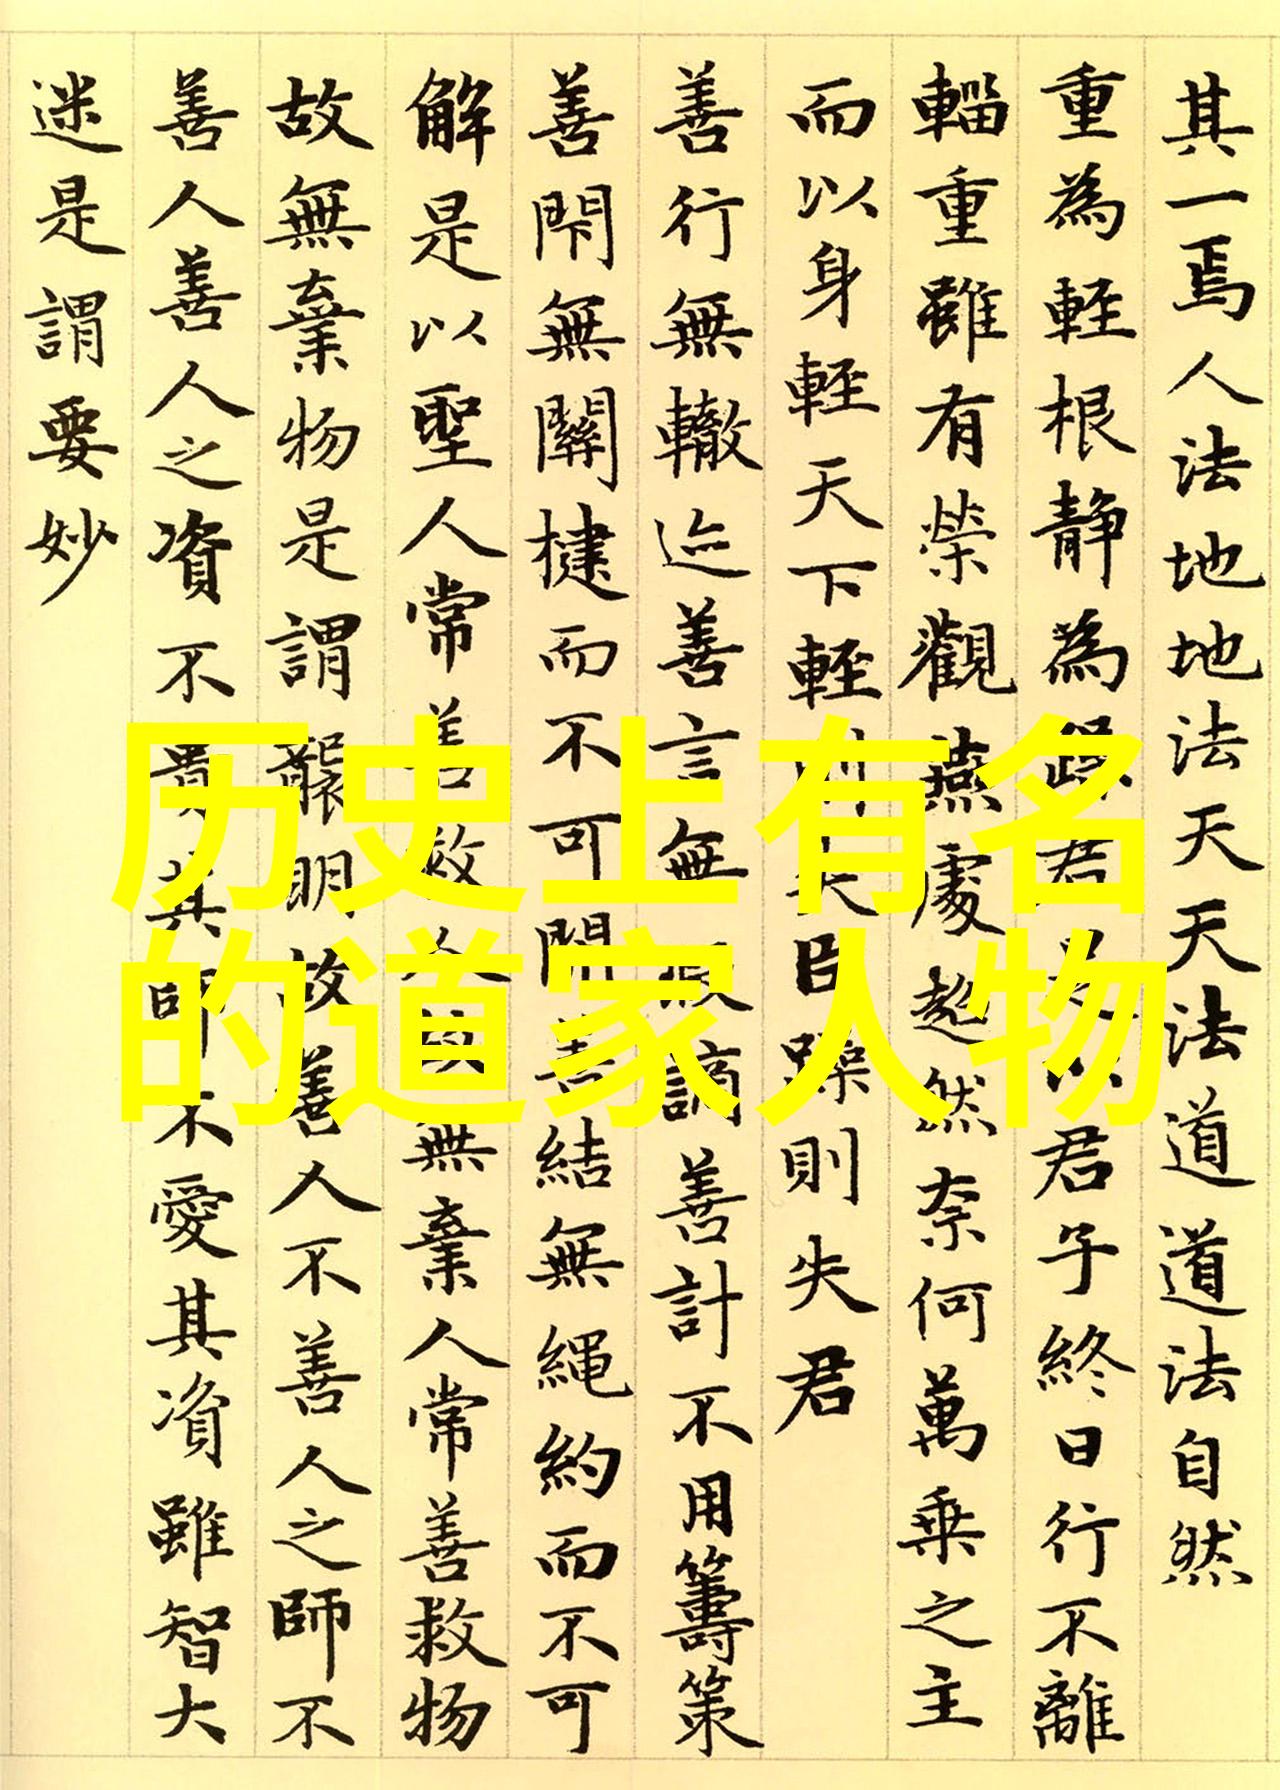 其一焉人法地地法天天法道道法自然
重為輕根靜為躁君是以君子終日行不離
輜重雖有榮觀燕處超然奈何萬乘之主
而以身輕天下輕則失臣躁則失君
善行無轍迹善言無瑕謫善計不用籌策
善閇無關楗而不可開善結無繩約而不可
解是以聖人常善救人故無棄人常善救物
故無棄物是謂襲明故善人不善人之師不
善人善人之資不貴其師不愛其資雖智大
迷是謂要妙
历史上有名
的道家人物